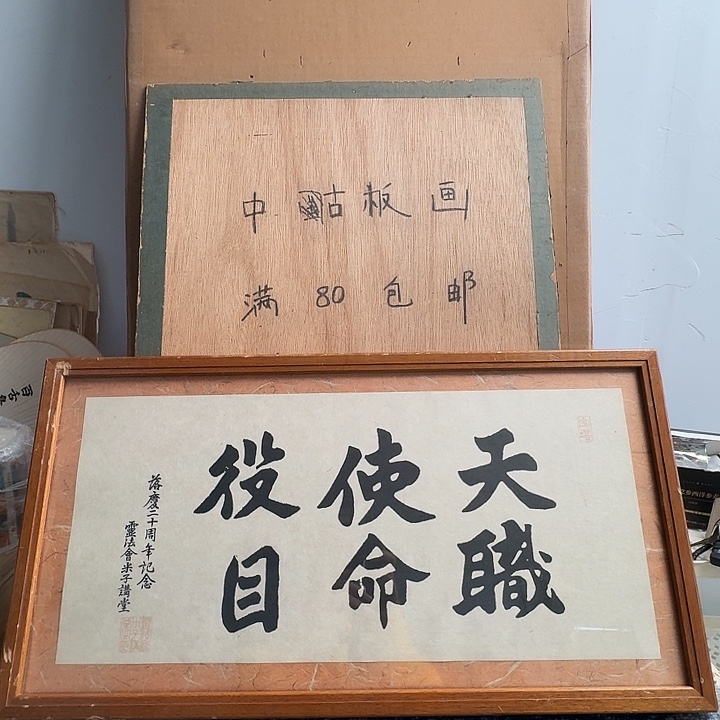 中古板画
满80包邮
天職
使命
役目
落慶二十周年記念
靈法會米子講堂